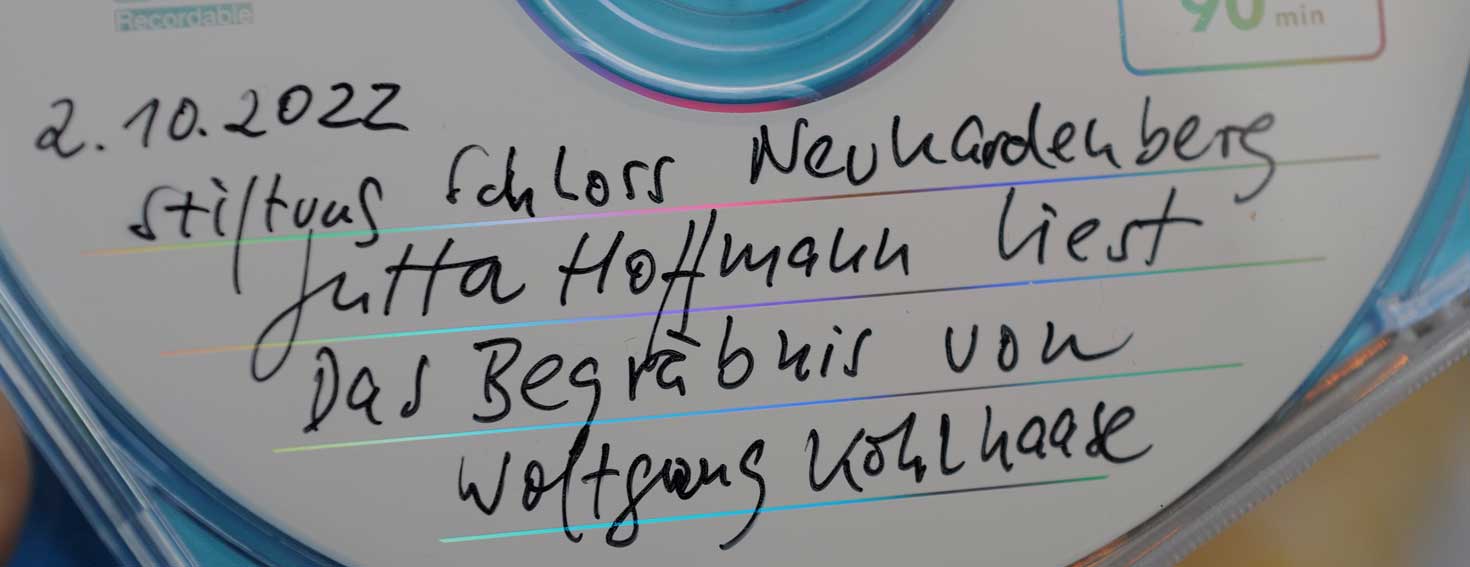 Recordable
90 min
2.10.2022
Stiftung Schloss Neuhardenberg
Jutta Hoffmann liest
Das Begräbnis von
Wolfgang Kohlhaase